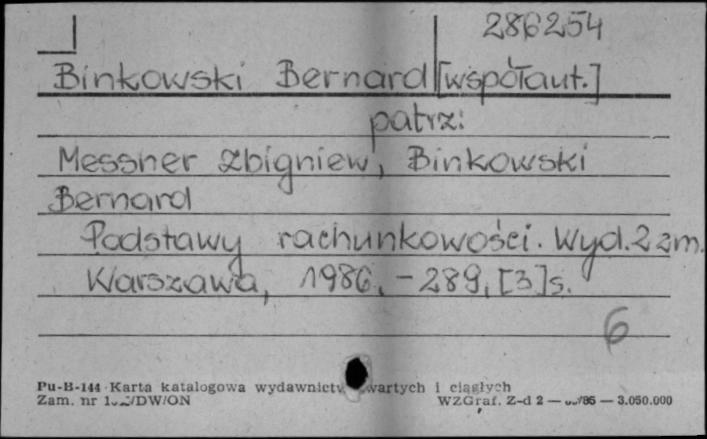 286254
Binkowski Bernard [współaut.]
patrz:
Messner Zbigniew, Binkowski
Bernard
Podstawy rachunkowości. Wyd. 2 zm.
Warszawa, 1986. - 289, [3] s.
6
Pu-B-144 Karta katalogowa wydawnictw zwartych i ciągłych
Zam. nr /DW/ON WZGraf. Z-d 2 — /85 — 3.050.000